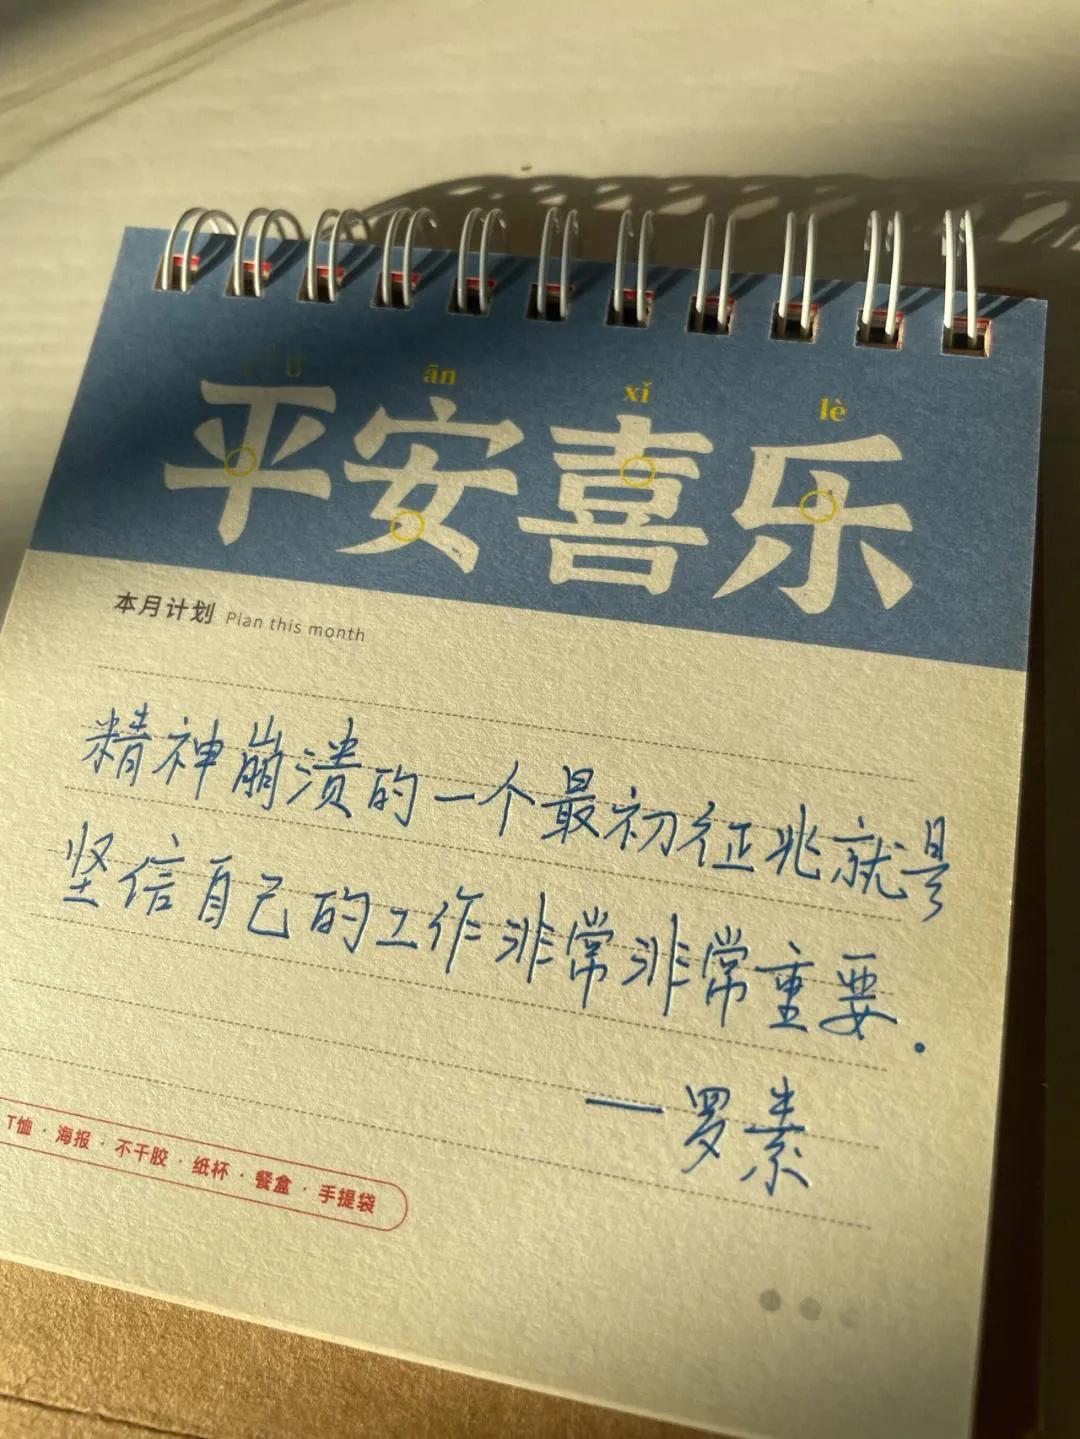 ān xǐ lè
平安喜乐
本月计划 Plan this month
精神崩溃的一个最初征兆就是
坚信自己的工作非常非常重要.
—罗素
T恤 · 海报 · 不干胶 · 纸杯 · 餐盒 · 手提袋